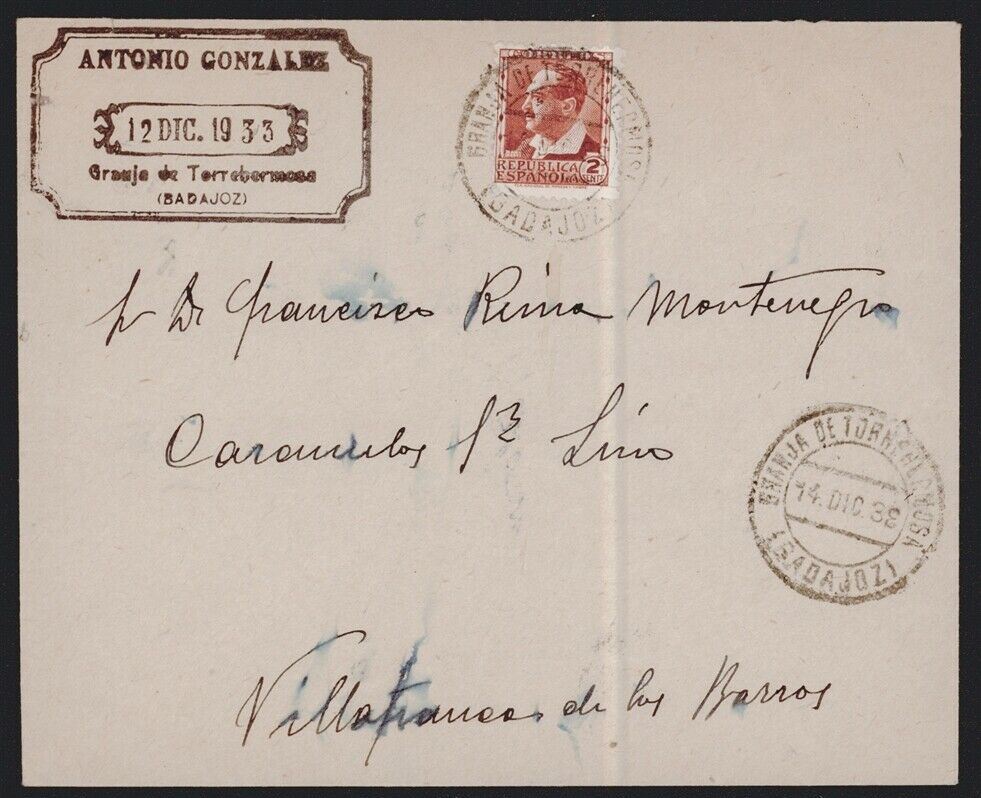 ANTONIO GONZALEZ
12 DIC. 1933
Granja de Torrehermosa
(BADAJOZ)
GRANJA DE TORREHERMOSA
(BADAJOZ)
REPUBLICA
ESPAÑOLA
2
CENTS
Dn Francisco Rima Montenegro
Lino
GRANJA DE TORREHERMOSA
14. DIC. 32
(BADAJOZ)
Villafranca de los Barros